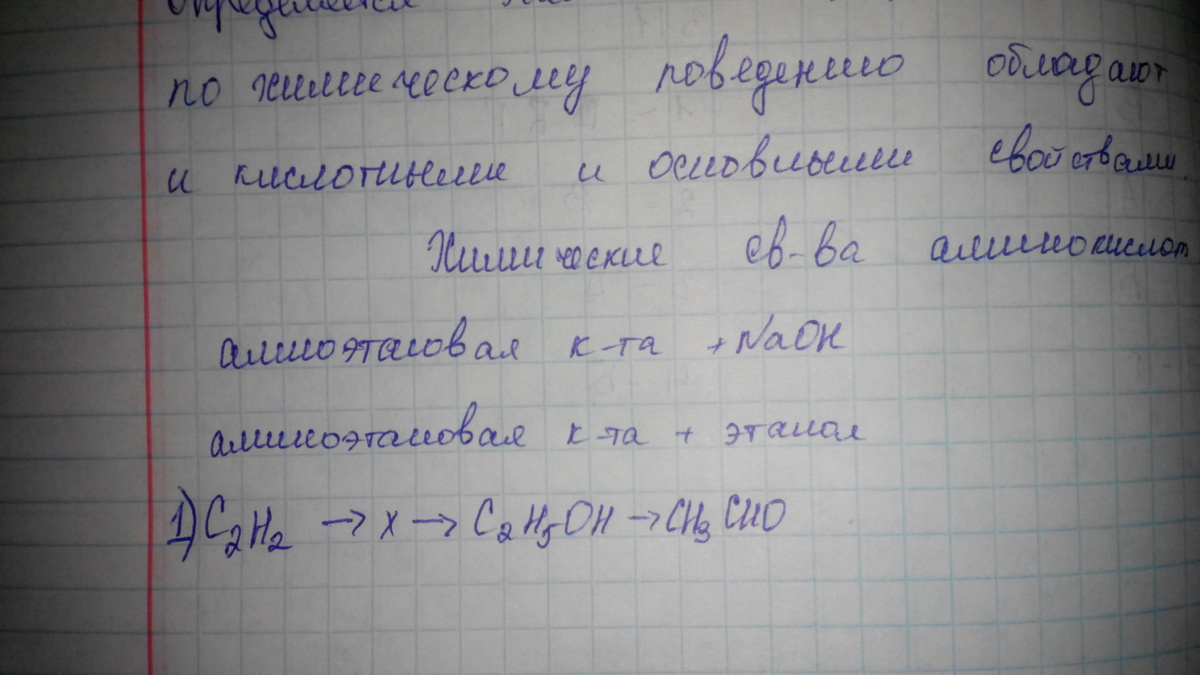 определяется
по химическому поведению обладают
и кислотными и основными свойствами.
Химические св-ва аминокислот
аминоэтановая к-та + NaOH
аминоэтановая к-та + этанол
1) C₂H₂ → X → C₂H₅OH → CH₃CHO